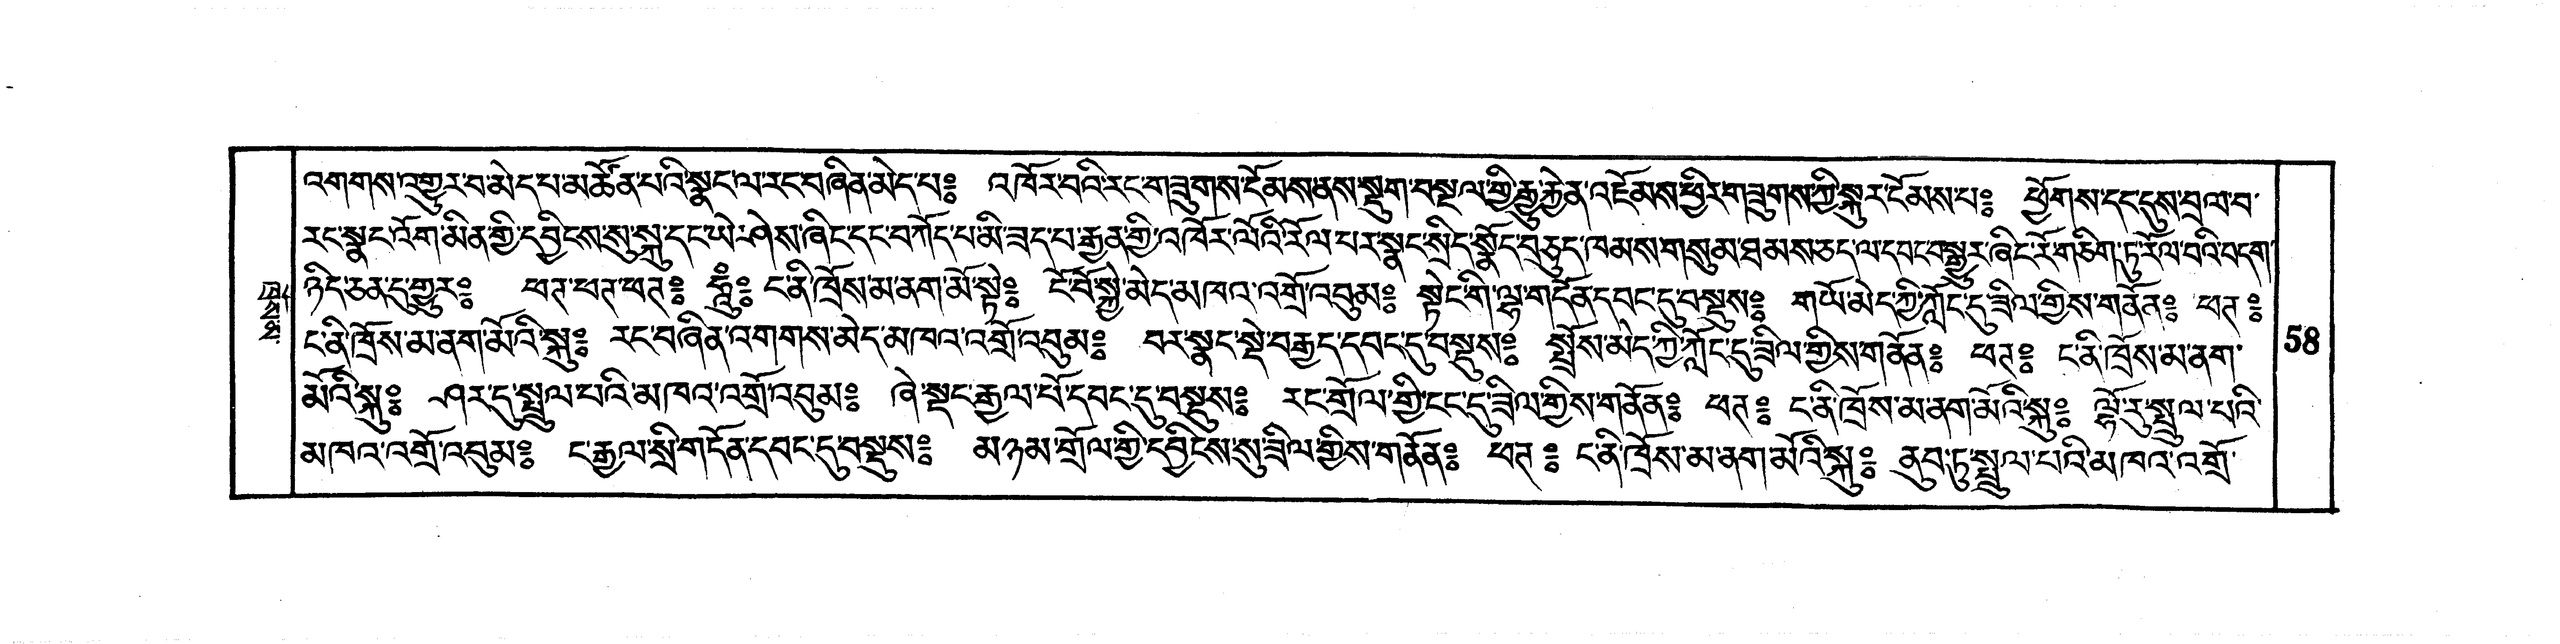 འགགས་འགྱུར་བ་མེད་པ་མཚོན་པའི་སྣང་ལ་རང་བཞིན་མེད་པ༔ འཁོར་བའི་རང་གཟུགས་ངོམས་ནས་སྡུག་བསྔལ་གྱི་རྒྱུ་རྐྱེན་འཇོམས་ཕྱིར་གཟུགས་ཀྱི་སྐུར་ངོམས་པ༔ ཕྱོགས་དང་དུས་བྲལ་བ་
རང་སྣང་འོག་མིན་གྱི་དབྱིངས་སུ་སྐུ་དང་ཡེ་ཤེས་ཞིང་དང་བཀོད་པ་མི་ཟད་པ་རྒྱན་གྱི་འཁོར་ལོའི་རོལ་པར་སྣང་སྲིད་སྣོད་བཅུད་ཁམས་གསུམ་ཐམས་ཅད་ལ་དབང་བསྒྱུར་ཞིང་རོ་གཅིག་ཏུ་རོལ་བའི་བདག་
ཉིད་ཅན་དུ་གྱུར༔ ཕཊ་ཕཊ་ཕཊ༔ ཧཱུྃ༔ ང་ནི་ཁྲོས་མ་ནག་མོ་སྟེ༔ ངོ་བོ་སྐྱེ་མེད་མཁའ་འགྲོ་འབུམ༔ སྟེང་གི་ལྷ་གདོན་དབང་དུ་བསྡུས༔ གཡོ་མེད་ཀྱི་ཀློང་དུ་ཟིལ་གྱིས་གནོན༔ ཕཊ༔
ང་ནི་ཁྲོས་མ་ནག་མོའི་སྐུ༔ རང་བཞིན་འགགས་མེད་མཁའ་འགྲོ་འབུམ༔ བར་སྣང་སྡེ་བརྒྱད་དབང་དུ་བསྡུས༔ སྤྲོས་མེད་ཀྱི་ཀློང་དུ་ཟིལ་གྱིས་གནོན༔ ཕཊ༔ ང་ནི་ཁྲོས་མ་ནག་
མོའི་སྐུ༔ ཤར་དུ་སྤྲུལ་པའི་མཁའ་འགྲོ་འབུམ༔ ཞེ་སྡང་རྒྱལ་པོ་དབང་དུ་བསྡུས༔ རང་གྲོལ་གྱི་ངང་དུ་ཟིལ་གྱིས་གནོན༔ ཕཊ༔ ང་ནི་ཁྲོས་མ་ནག་མོའི་སྐུ༔ ལྷོ་རུ་སྤྲུལ་པའི་
མཁའ་འགྲོ་འབུམ༔ ང་རྒྱལ་སྲི་གདོན་དབང་དུ་བསྡུས༔ མཉམ་གྲོལ་གྱི་དབྱིངས་སུ་ཟིལ་གྱིས་གནོན༔ ཕཊ༔ ང་ནི་ཁྲོས་མ་ནག་མོའི་སྐུ༔ ནུབ་ཏུ་སྤྲུལ་པའི་མཁའ་འགྲོ་
58